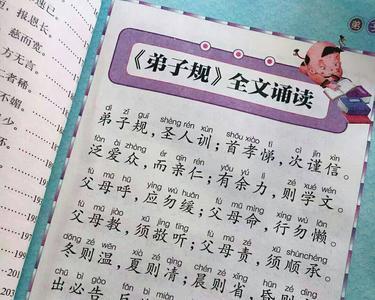 报恩长。
慈而宽。
方无言。
者稀。
不媚。
少。
199
203
弟
《弟子规》全文诵读
dì zǐ guī shèng rén xùn shǒu xiào tì cì jǐn xìn
弟子规，圣人训；首孝悌，次谨信。
fàn ài zhòng ér qīn rén yǒu yú lì zé xué wén
泛爱众，而亲仁；有余力，则学文。
fù mǔ hū yìng wù huǎn fù mǔ mìng xíng wù lǎn
父母呼，应勿缓；父母命，行勿懒。
fù mǔ jiào xū jìng tīng fù mǔ zé xū shùnchéng
父母教，须敬听；父母责，须顺承。
dōng zé wēn xià zé qìng chén zé xǐng
冬则温，夏则凊；晨则省，昏
chū bì gào
出必告，